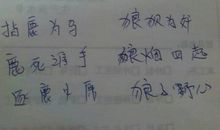 指鹿为马 狼狈为奸
鹿死谁手 狼烟四起
逐鹿中原 狼子野心